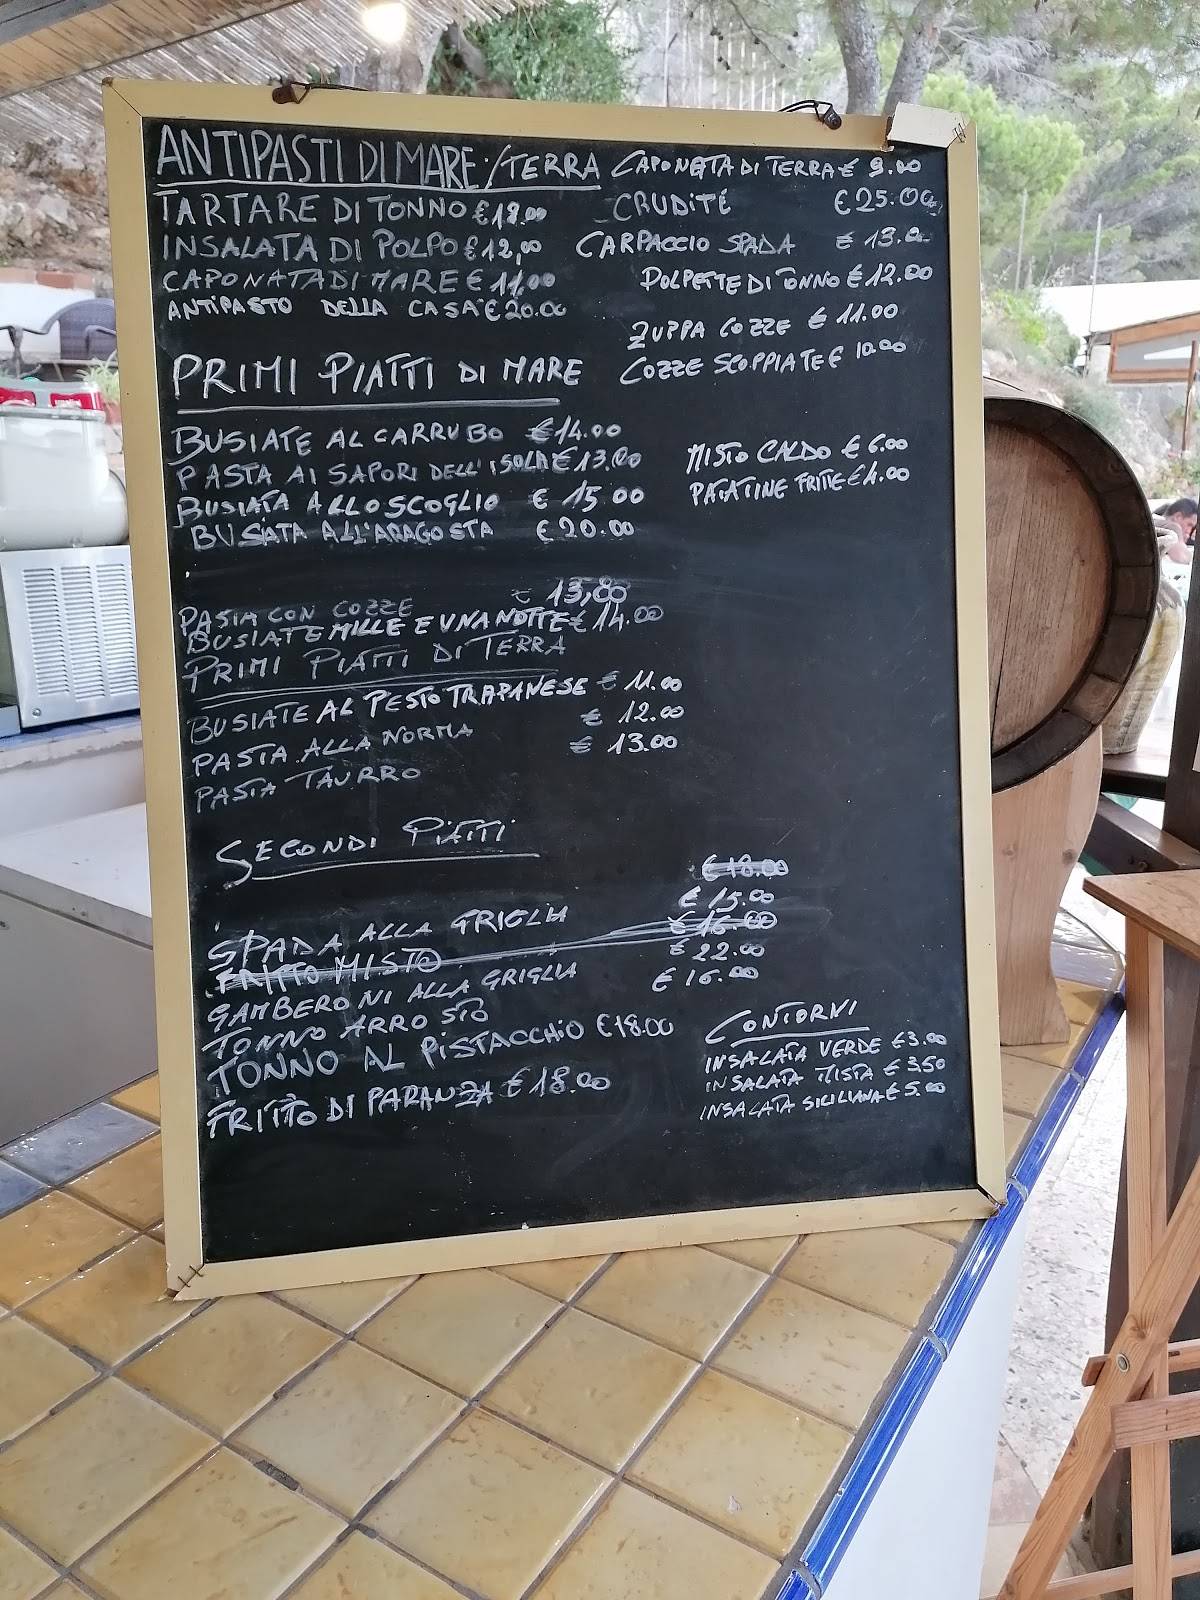 ANTIPASTI DI MARE:/TERRA
TARTARE DI TONNO €18.00
INSALATA DI POLPO €12,00
CAPONATA DI MARE € 11,00
ANTIPASTO DELLA CASA €20.00
CAPONATA DI TERRA € 9.00
CRUDITÉ €25.00
CARPACCIO SPADA € 13.00
POLPETTE DI TONNO €12.00
ZUPPA COZZE € 11.00
COZZE SCOPPIATE € 10.00
PRIMI PIATTI DI MARE
BUSIATE AL CARRUBO €14.00
PASTA AI SAPORI DELL'ISOLA €13.00
BUSIATA ALLO SCOGLIO € 15.00
BUSIATA ALL'ARAGOSTA €20.00
MISTO CALDO € 6.00
PATATINE FRITTE €4.00
PASTA CON COZZE € 13,00
BUSIATE MILLE E UNA NOTTE € 14.00
PRIMI PIATTI DI TERRA
BUSIATE AL PESTO TRAPANESE € 11.00
PASTA ALLA NORMA € 12.00
PASTA TAURRO € 13.00
SECONDI PIATTI
€ 18.00
SPADA ALLA GRIGLIA € 15.00
FRITTO MISTO € 16.00
GAMBERONI ALLA GRIGLIA € 22.00
TONNO ARROSTO € 16.00
TONNO AL PISTACCHIO €18.00
FRITTO DI PARANZA €18.00
CONTORNI
INSALATA VERDE €3.00
INSALATA MISTA € 3,50
INSALATA SICILIANA € 5.00